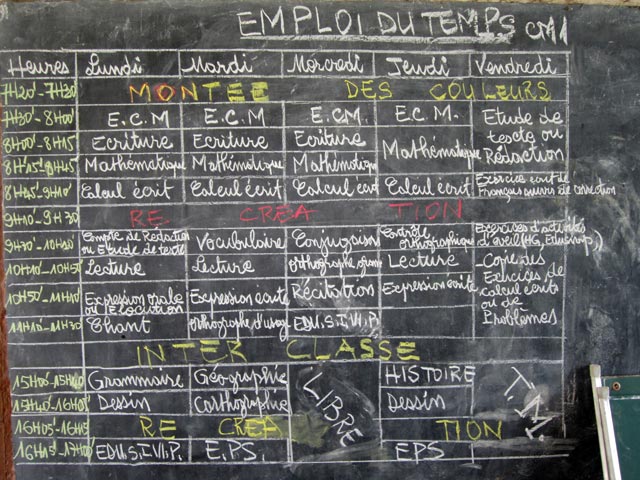 EMPLOI DU TEMPS CM1
Heures Lundi Mardi Mercredi Jeudi Vendredi
7H20'-7H30' MONTEE DES COULEURS
7H30'-8H00' E.C.M E.C.M E.CM. E.C.M. Etude de texte ou Rédaction
8H00'-8H15' Ecriture Ecriture Ecriture Mathématique
8H15'-8H45' Mathématique Mathématique Mathématique
8H45'-9H10' Calcul écrit Calcul écrit Calcul écrit Calcul écrit Exercice écrit de Français suivi de correction
9H10-9H30 RE CREA TION
9H30'-10H10' Compte de Rédaction ou Etude de texte Vocabulaire Conjugaison Contrôle orthographique Exercices d'activités d'éveil (HG,
10H10'-10H50' Lecture Lecture Orthographe Lecture Copie
10H50'-11H10' Expression orale ou Elocution Expression écrite Récitation Expression écrite Exercices de calcul écrits ou de Problèmes
11H10-11H30 Chant Orthographe d'usage EDU.S.I.VI.P.
INTER CLASSE
15H00'-15H40' Grammaire Géographie LIBRE HISTOIRE T.M.
15H40'-16H05' Dessin Cartographie Dessin
16H05'-16H15' RE CREA TION
16H15'-17H00' EDU.S.I.VI.P. E.P.S. EPS